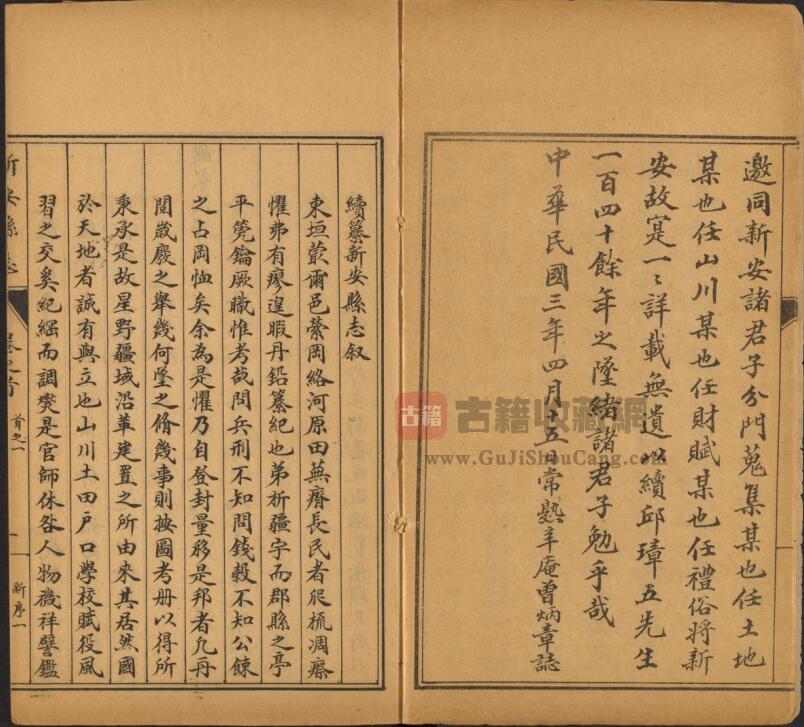 邀同新安諸君子分門蒐集某也任土地
某也任山川某也任財賦某也任禮俗將新
安故寔一〻詳載無遺以續邱璋五先生
一百四十餘年之墜緒諸君子勉乎哉
中華民國三年四月十五日常熟辛庵曾炳章誌
續纂新安縣志叙
東垣蕞爾邑縈岡絡河原田蕪瘠長民者爬梳凋瘵
懼弗有瘳遑暇丹鉛纂紀也第析疆宇而郡縣之亭
平筦鑰厥職惟考哉問兵刑不知問錢穀不知公餗
之占罔恤矣余為是懼乃自登封量移是邦者凡再
閱歲廢之舉幾何墜之脩幾事則按圖考册以得所
秉承是故星野疆域沿革建置之所由來其居然國
於天地者誠有與立也山川土田戶口學校賦役風
習之交奚紀綱而調爕是官師休咎人物禨祥譬鑑
新安縣志
卷之首
首之一
一
新序一
古籍
古籍收藏網
www.GuJiShouCang.com